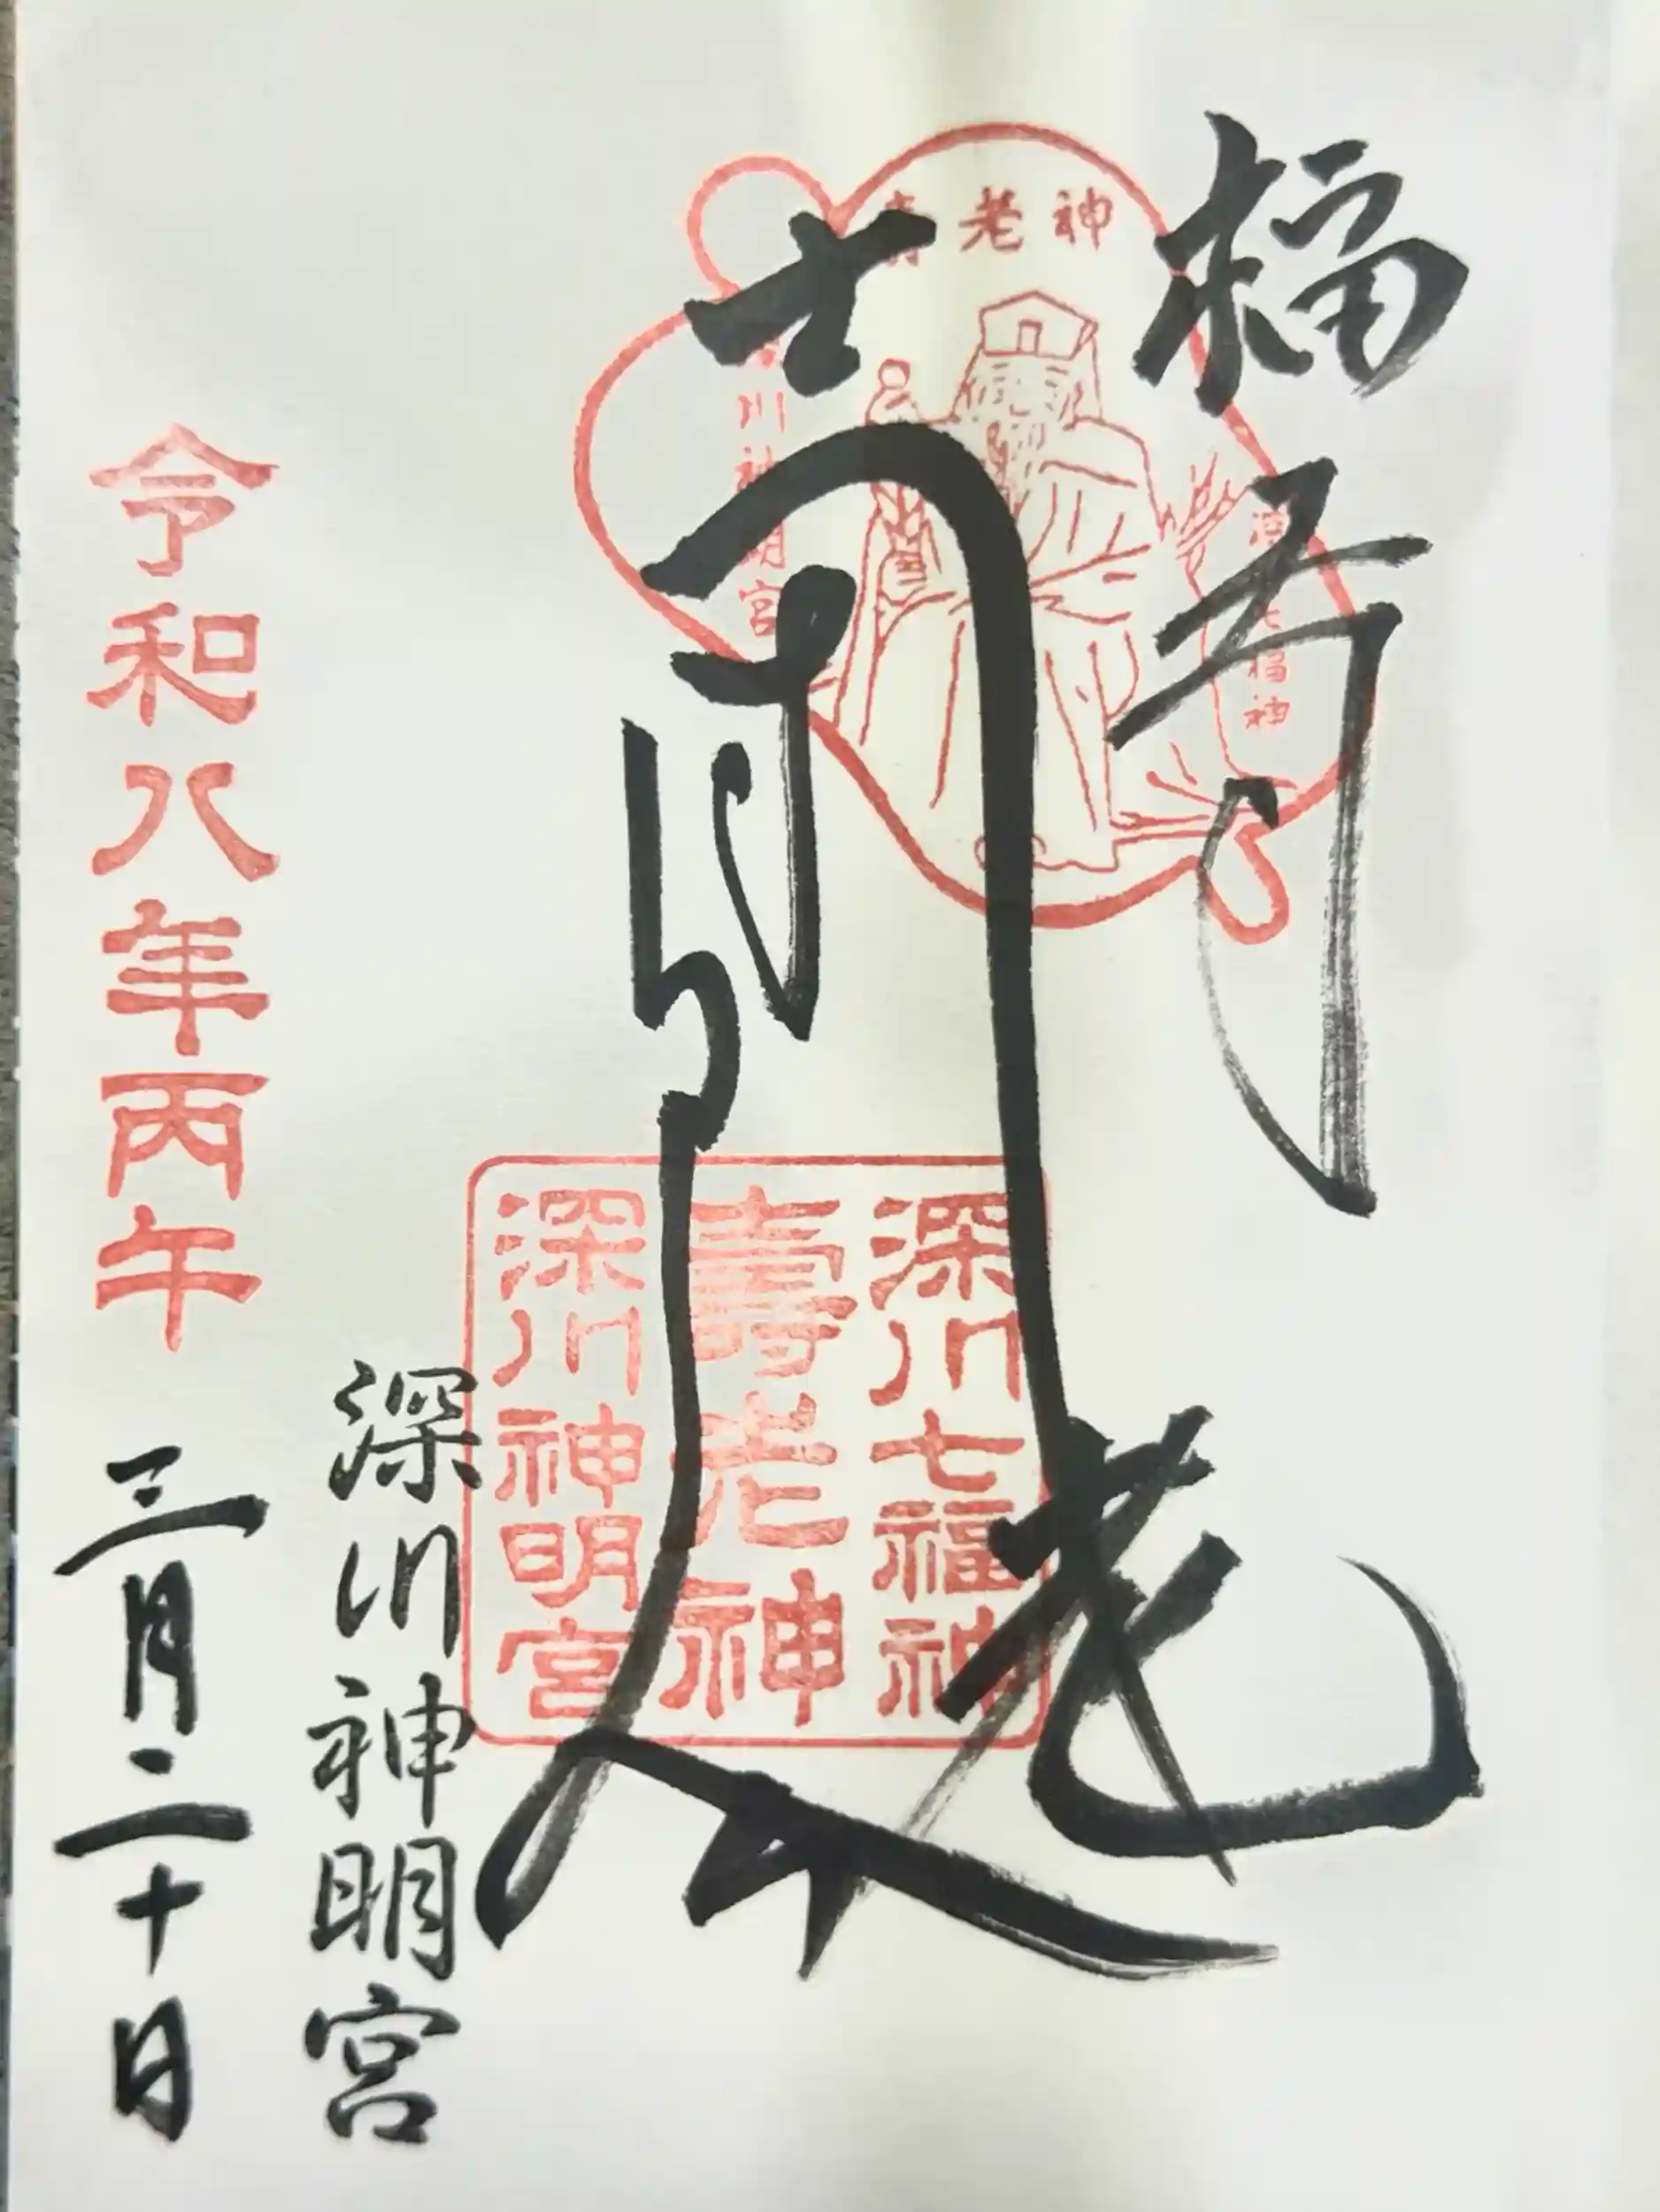 福寿
老
壽老神
深川七福神
深川神明宮
深川七福神
壽老神
深川神明宮
深川神明宮
令和八年丙午
三月二十日